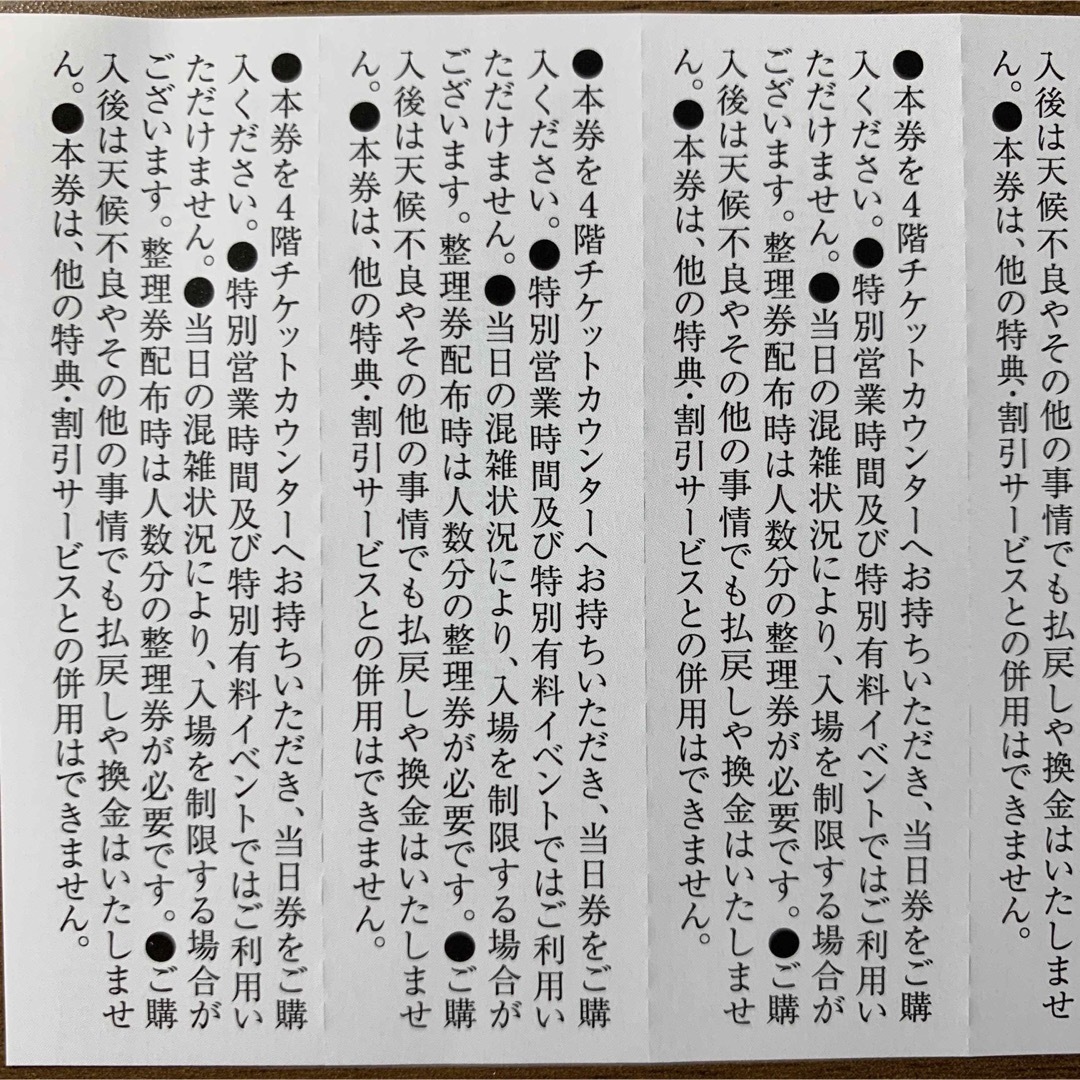 入後は天候不良やその他の事情でも払戻しや換金はいたしませ
ん。●本券は、他の特典・割引サービスとの併用はできません。
●本券を4階チケットカウンターへお持ちいただき、当日券をご購
入ください。●特別営業時間及び特別有料イベントではご利用い
ただけません。●当日の混雑状況により、入場を制限する場合が
ございます。整理券配布時は人数分の整理券が必要です。●ご購
入後は天候不良やその他の事情でも払戻しや換金はいたしませ
ん。●本券は、他の特典・割引サービスとの併用はできません。
●本券を4階チケットカウンターへお持ちいただき、当日券をご購
入ください。●特別営業時間及び特別有料イベントではご利用い
ただけません。●当日の混雑状況により、入場を制限する場合が
ございます。整理券配布時は人数分の整理券が必要です。●ご購
入後は天候不良やその他の事情でも払戻しや換金はいたしませ
ん。●本券は、他の特典・割引サービスとの併用はできません。
●本券を4階チケットカウンターへお持ちいただき、当日券をご購
入ください。●特別営業時間及び特別有料イベントではご利用い
ただけません。●当日の混雑状況により、入場を制限する場合が
ございます。整理券配布時は人数分の整理券が必要です。●ご購
入後は天候不良やその他の事情でも払戻しや換金はいたしませ
ん。●本券は、他の特典・割引サービスとの併用はできません。